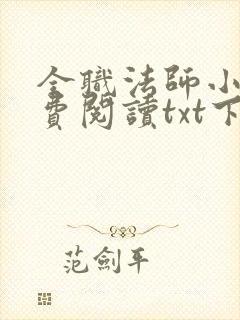 全職法師小
費閱讀txt下
范劍平